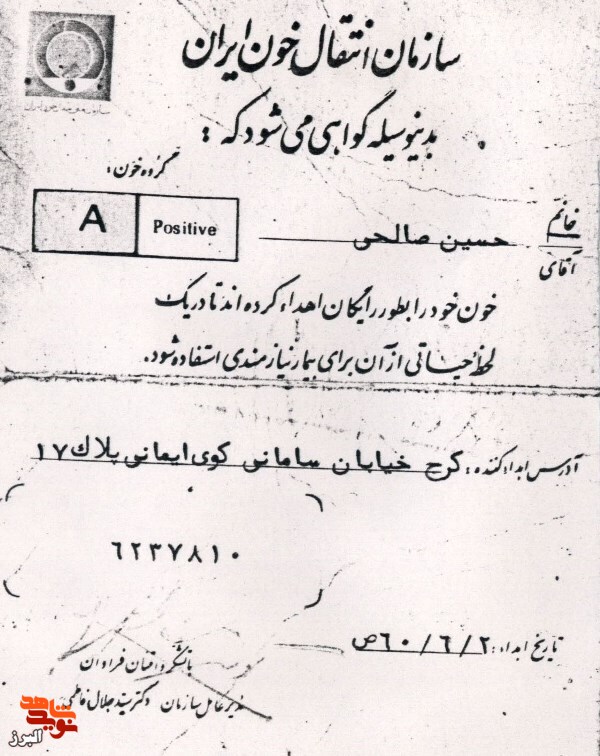 سازمان انتقال خون ایران
بدینوسیله گواهی می شود که :
گروه خون :
A Positive
خانم
آقای
حسین صالحی
خون خود را بطور رایگان اهداء کرده اند تا در یک
لحظه حیاتی از آن برای بیمار نیازمندی استفاده شود.
آدرس اهداءکننده : کرج خیابان سامانی کوی ایمانی پلاک ۱۷
٦٢٣٧٨١٠
تاریخ اهداء : ٦٠/٦/٢ ص
باتشکر و امتنان فراوان
مدیر عامل سازمان دکتر سید جلال فاطمی
نوید شاهد
البرز